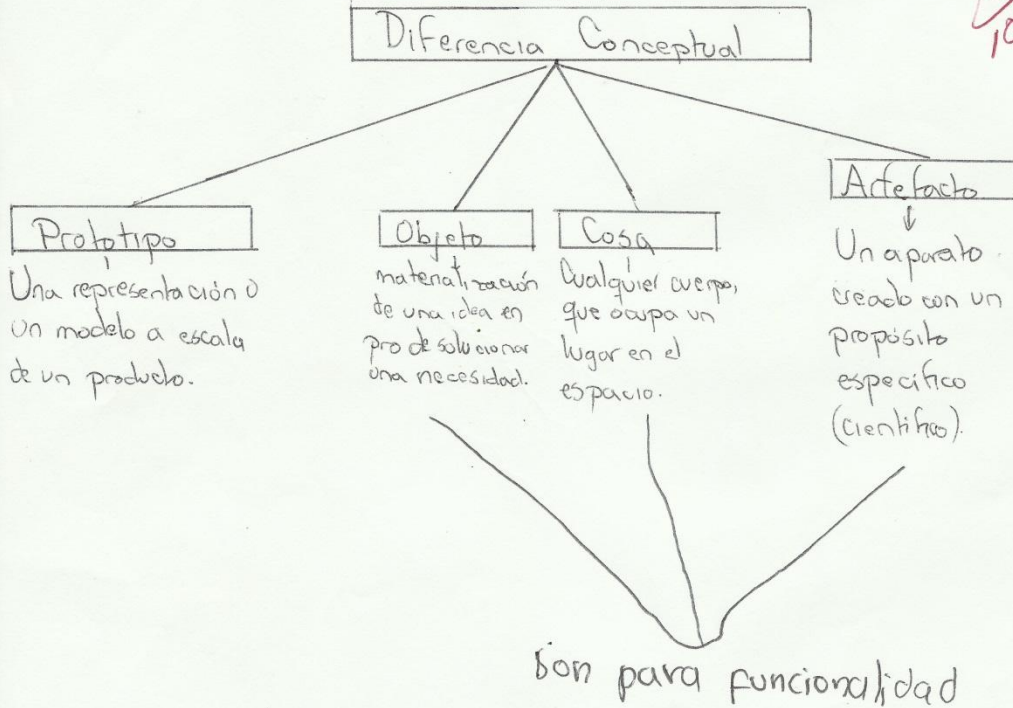 Diferencia Conceptual
Prototipo
Una representación o
un modelo a escala
de un producto.
Objeto
materialización
de una idea en
pro de solucionar
una necesidad.
Cosa
Cualquier cuerpo,
que ocupa un
lugar en el
espacio.
Artefacto
Un aparato
creado con un
propósito
específico
(científico).
Son para funcionalidad